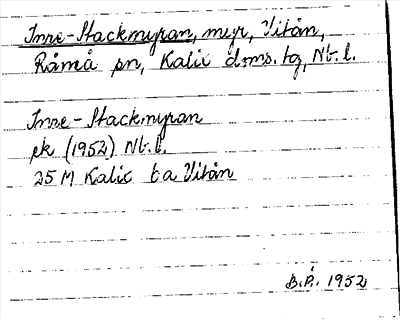 Inre-Stackmyran, myr, Vitån,
Råneå sn, Kalix dms. tg, Nb. l.
Inre-Stackmyran
ek (1952) Nb. l.
25 M Kalix 6a Vitån
B.P. 1952